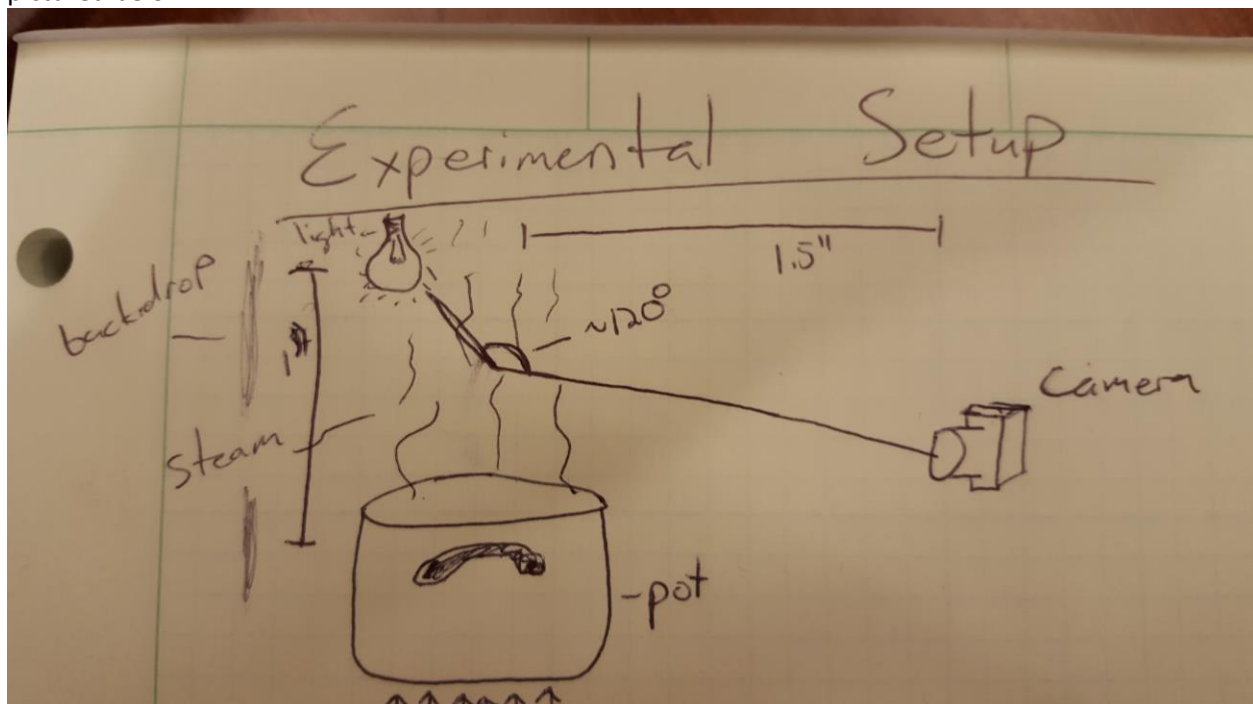 Experimental Setup
light
1.5"
backdrop
~120°
Camera
steam
pot